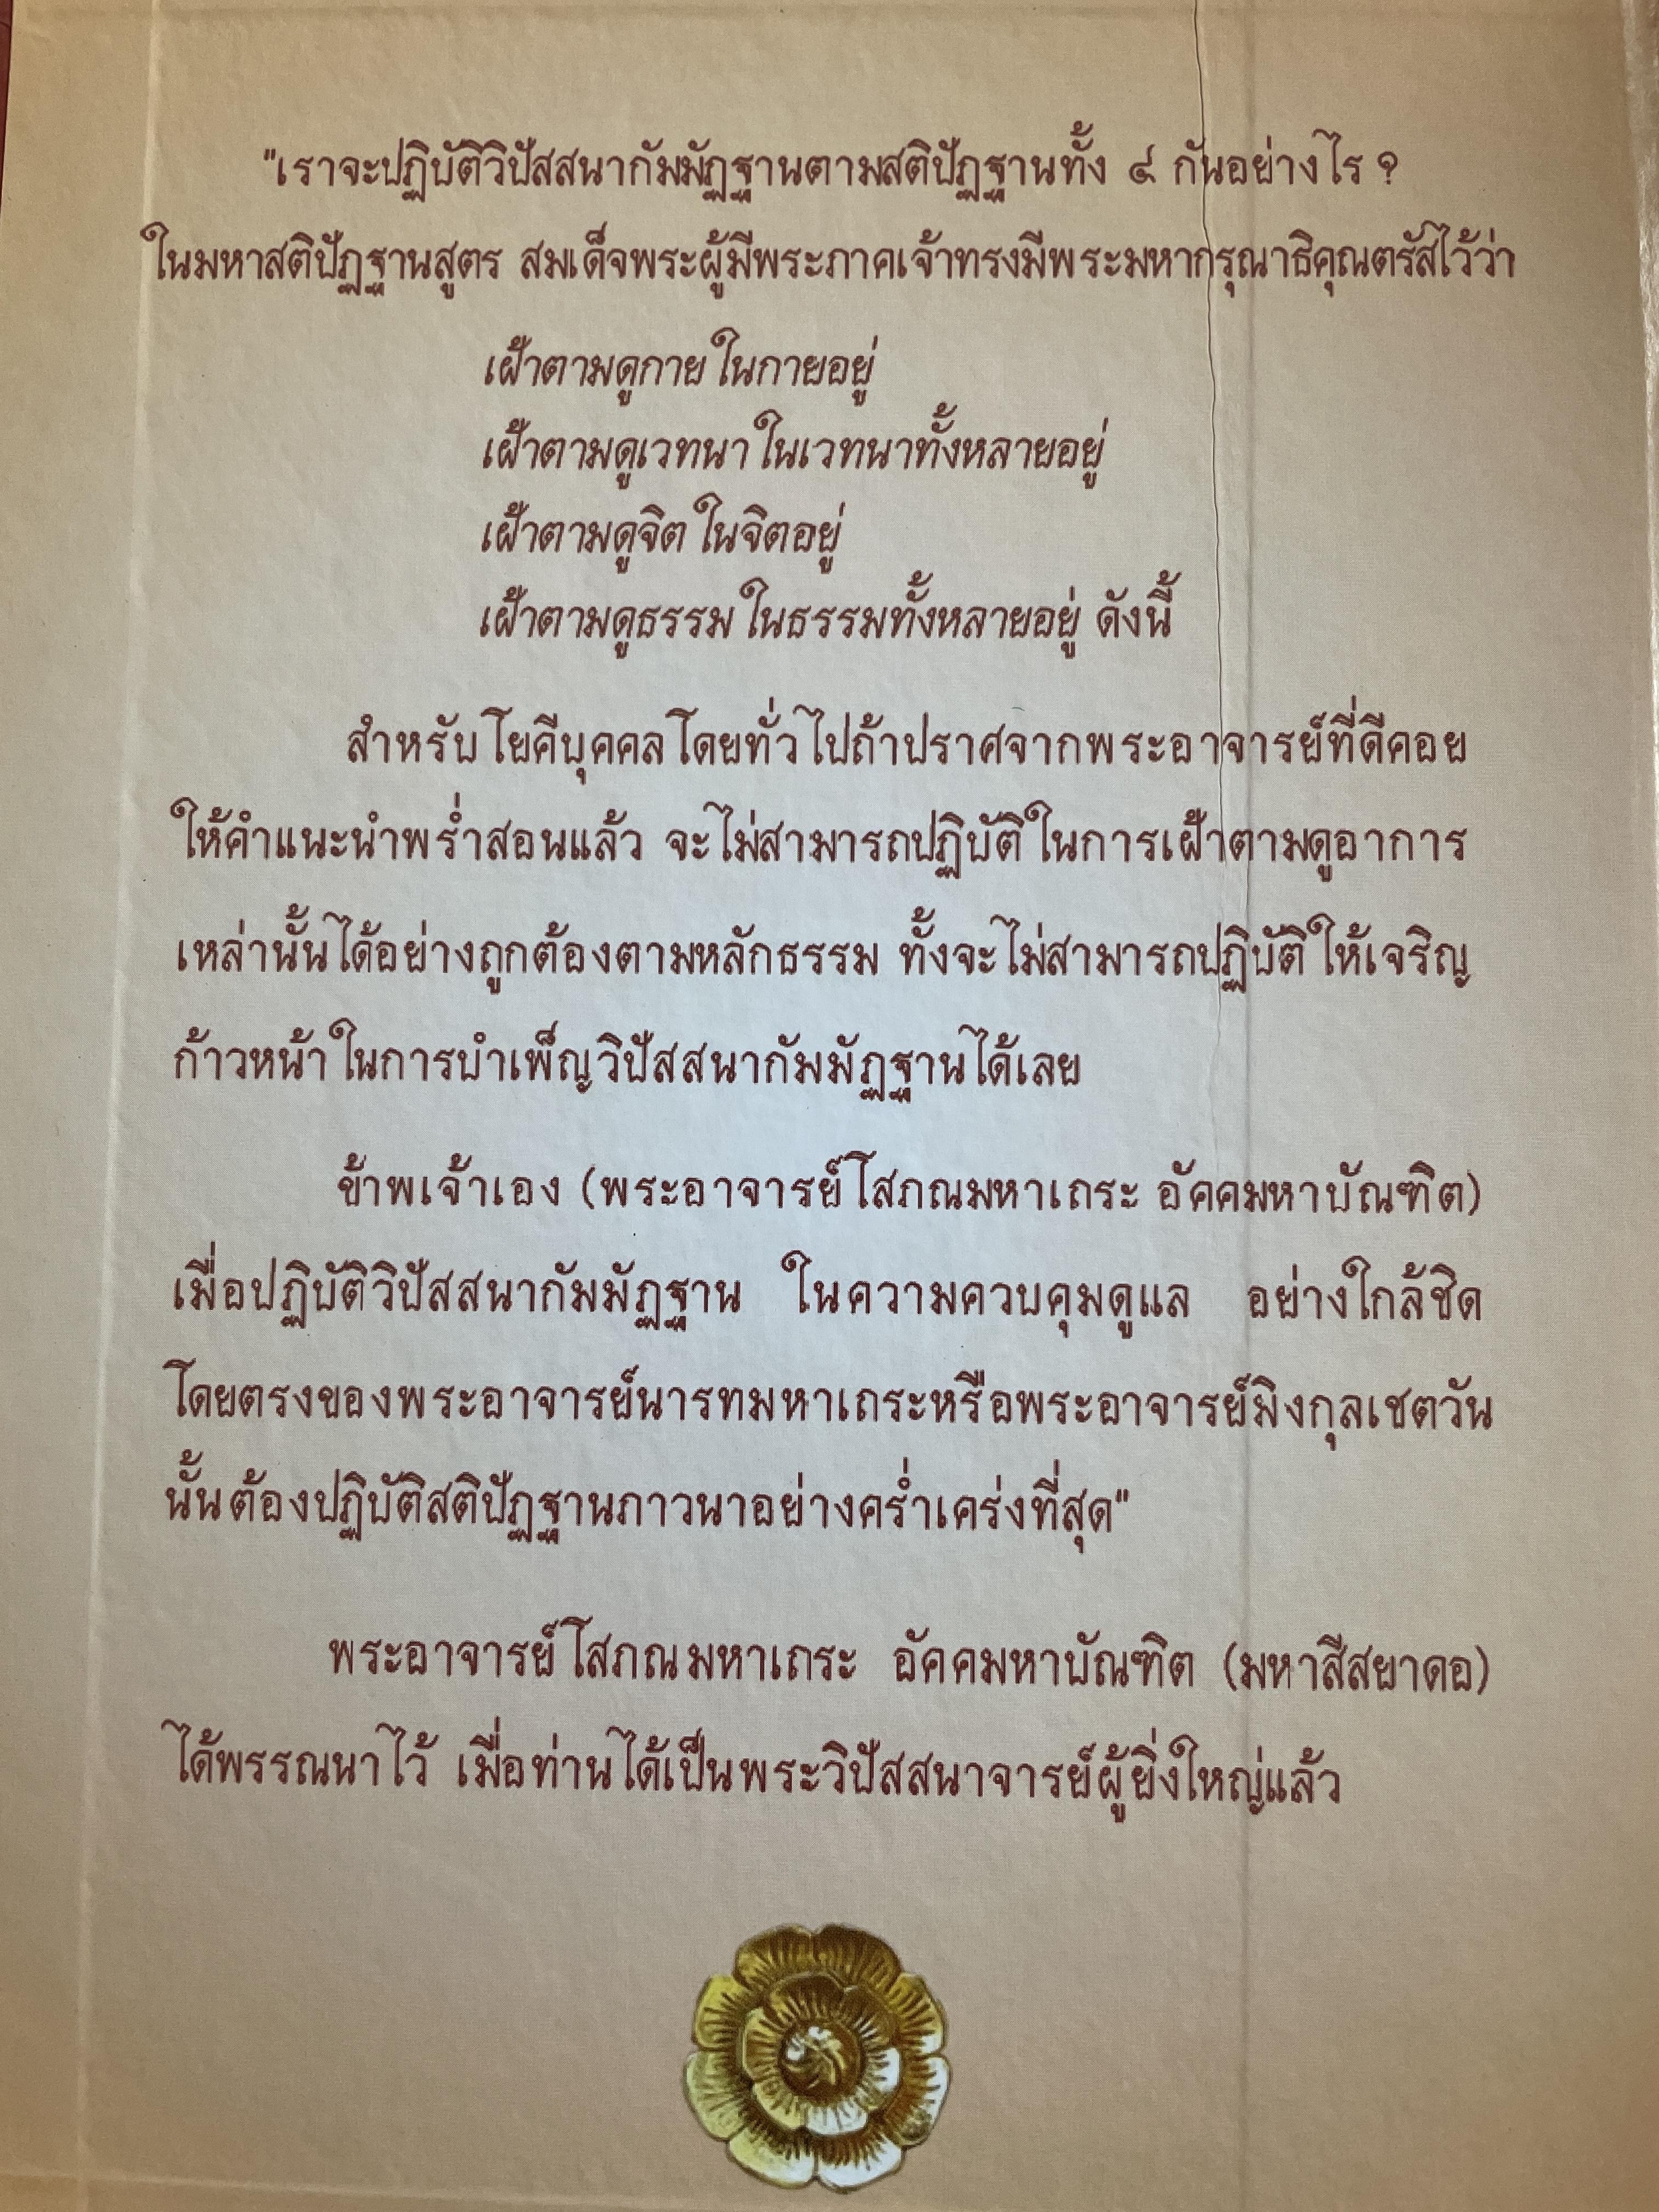 "เราจะปฏิบัติวิปัสสนากัมมัฏฐานตามสติปัฏฐานทั้ง ๔ กันอย่างไร ?
ในมหาสติปัฏฐานสูตร สมเด็จพระผู้มีพระภาคเจ้าทรงมีพระมหากรุณาธิคุณตรัสไว้ว่า
เฝ้าตามดูกาย ในกายอยู่
เฝ้าตามดูเวทนา ในเวทนาทั้งหลายอยู่
เฝ้าตามดูจิต ในจิตอยู่
เฝ้าตามดูธรรม ในธรรมทั้งหลายอยู่ ดังนี้
สำหรับโยคีบุคคลโดยทั่วไปถ้าปราศจากพระอาจารย์ที่ดีคอย
ให้คำแนะนำพร่ำสอนแล้ว จะไม่สามารถปฏิบัติในการเฝ้าตามดูอาการ
เหล่านั้นได้อย่างถูกต้องตามหลักธรรม ทั้งจะไม่สามารถปฏิบัติให้เจริญ
ก้าวหน้าในการบำเพ็ญวิปัสสนากัมมัฏฐานได้เลย
ข้าพเจ้าเอง (พระอาจารย์โสภณมหาเถระ อัคคมหาบัณฑิต)
เมื่อปฏิบัติวิปัสสนากัมมัฏฐาน ในความควบคุมดูแล อย่างใกล้ชิด
โดยตรงของพระอาจารย์นารทมหาเถระหรือพระอาจารย์มิงกุลเชตวัน
นั้นต้องปฏิบัติสติปัฏฐานภาวนาอย่างคร่ำเคร่งที่สุด"
พระอาจารย์โสภณมหาเถระ อัคคมหาบัณฑิต (มหาสีสยาดอ)
ได้พรรณนาไว้ เมื่อท่านได้เป็นพระวิปัสสนาจารย์ผู้ยิ่งใหญ่แล้ว